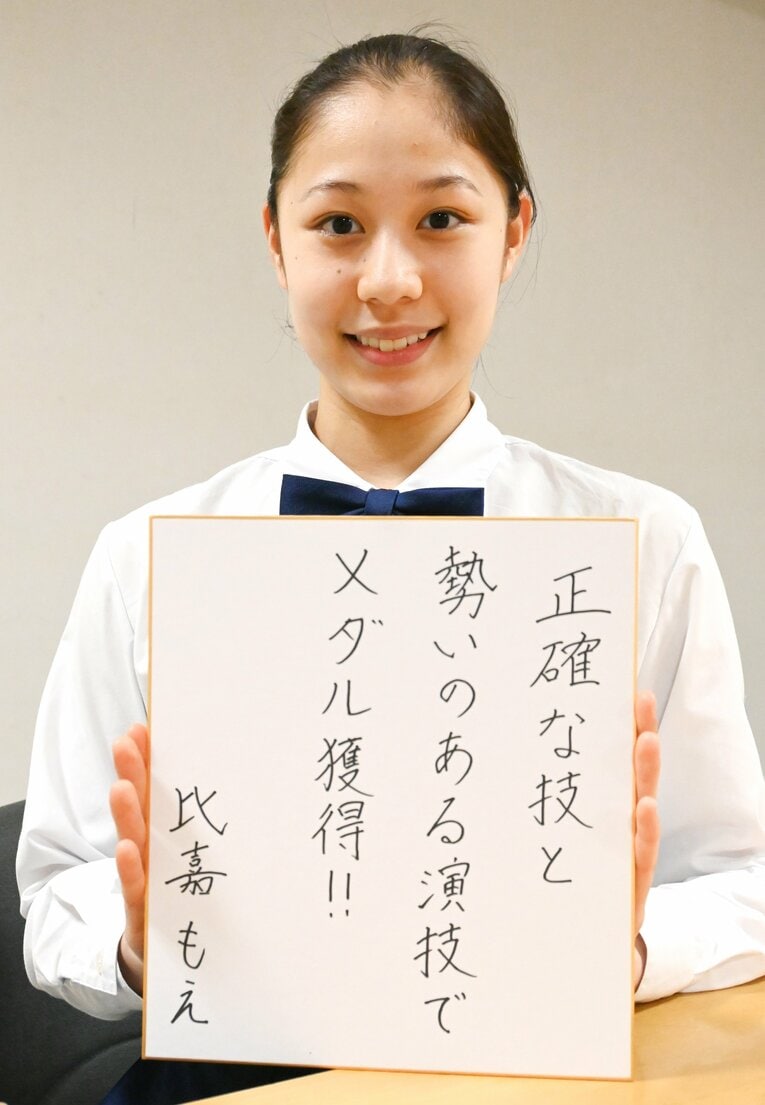 正確な技と
勢いのある演技で
メダル獲得!!
比嘉もえ